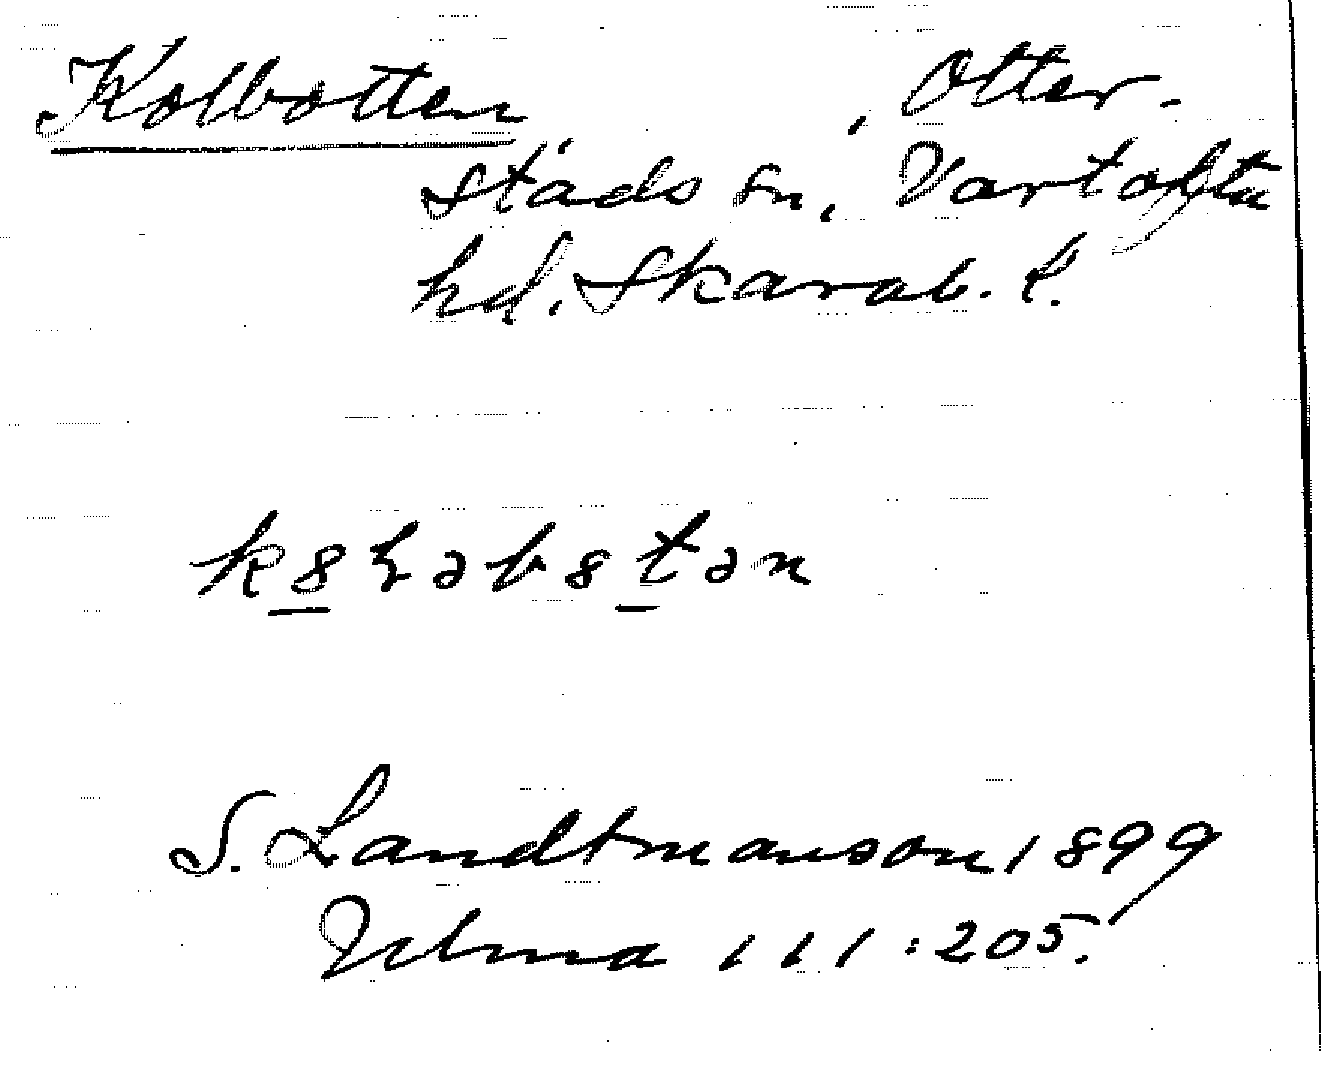 Kolbotten , Otter-
stads sn, Vartofta
hd. Skarab. l.
S. Landtmanson 1899
Ulma 111:205.